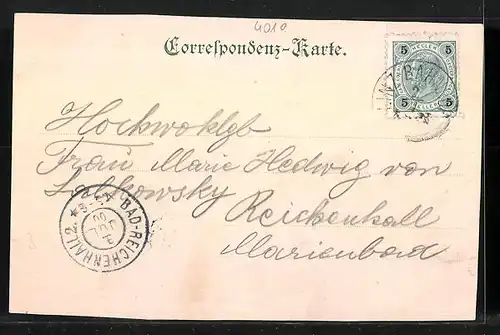 4010
Correspondenz-Karte.
5 HELLER 5
LINZ BAH
5 HELLER 5
Hochwohlgb
Frau Marie Hedwig von
Reichenhall
Marienbad
* BAD-REICHENHALL 2.
3 JUL 00